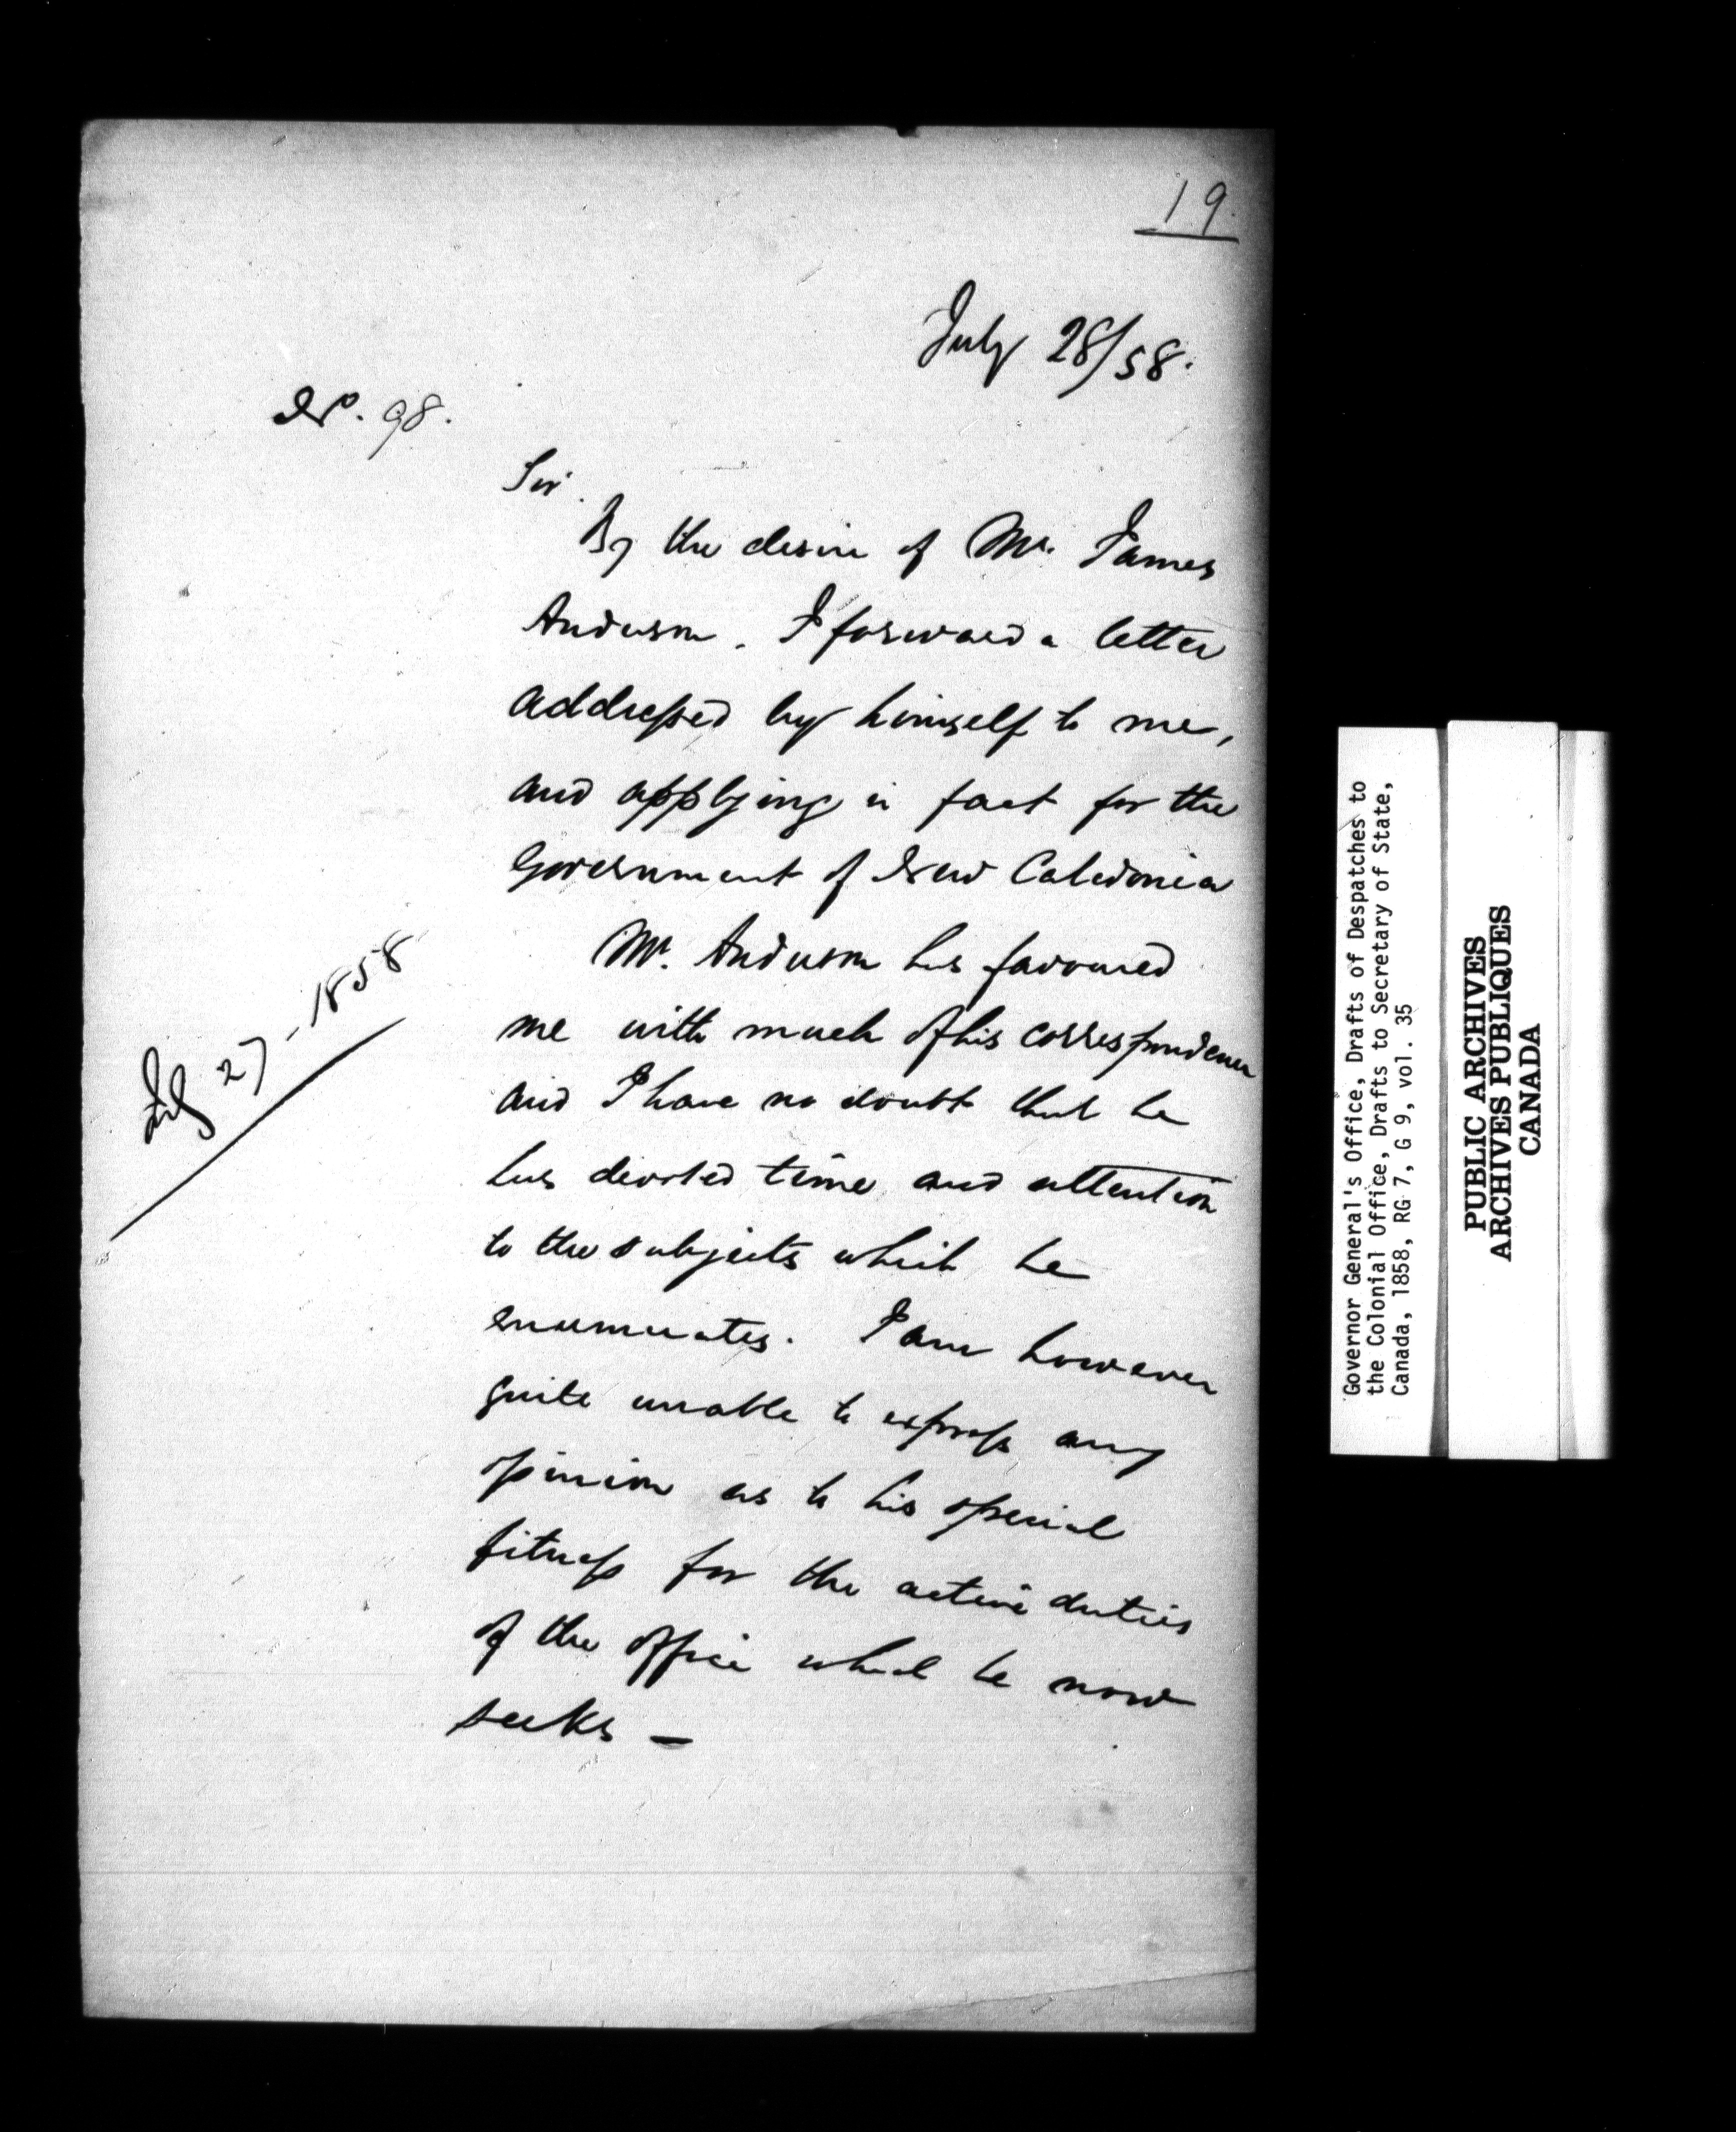 19.
July 28/58.
No. 98.
Sir.
By the desire of Mr. James
Anderson. I forward a letter
addressed by himself to me,
and applying in fact for the
Government of New Caledonia
Mr. Anderson has favoured
me with much of his correspondence
and I have no doubt that he
has devoted time and attention
to the subjects which he
enumerates. I am however
quite unable to express any
opinion as to his special
fitness for the active duties
of the office which he now
seeks —
July 27 - 1858
Governor General's Office, Drafts of Despatches to
the Colonial Office, Drafts to Secretary of State,
Canada, 1858, RG 7, G 9, vol. 35
PUBLIC ARCHIVES
ARCHIVES PUBLIQUES
CANADA